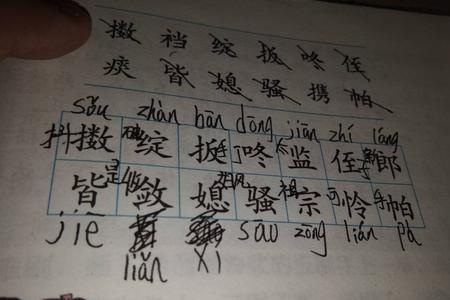 擞 裆 绽 扳 咚 侄
痰 皆 媳 骚 携 帕
sǒu zhàn bān dōng jiān zhí láng
抖擞 绽 扳 咚 监 侄 郎
皆是 收敛 媳 骚 祖宗 可怜 手帕
jiē sāo zōng lián pà
liǎn xí